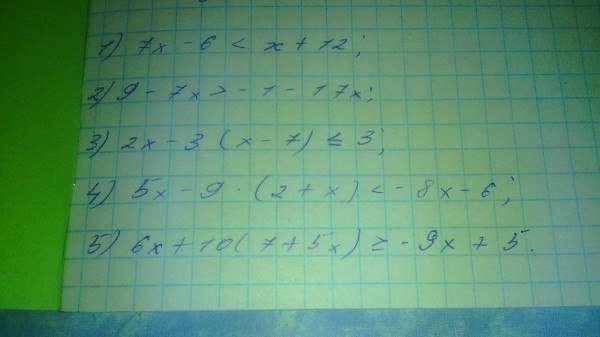 1) 7x - 6 < x + 12;
2) 9 - 7x > - 1 - 17x;
3) 2x - 3 (x - 7) ≤ 3;
4) 5x - 9 · (2 + x) < - 8x - 6;
5) 6x + 10 (7 + 5x) ≥ - 9x + 5.